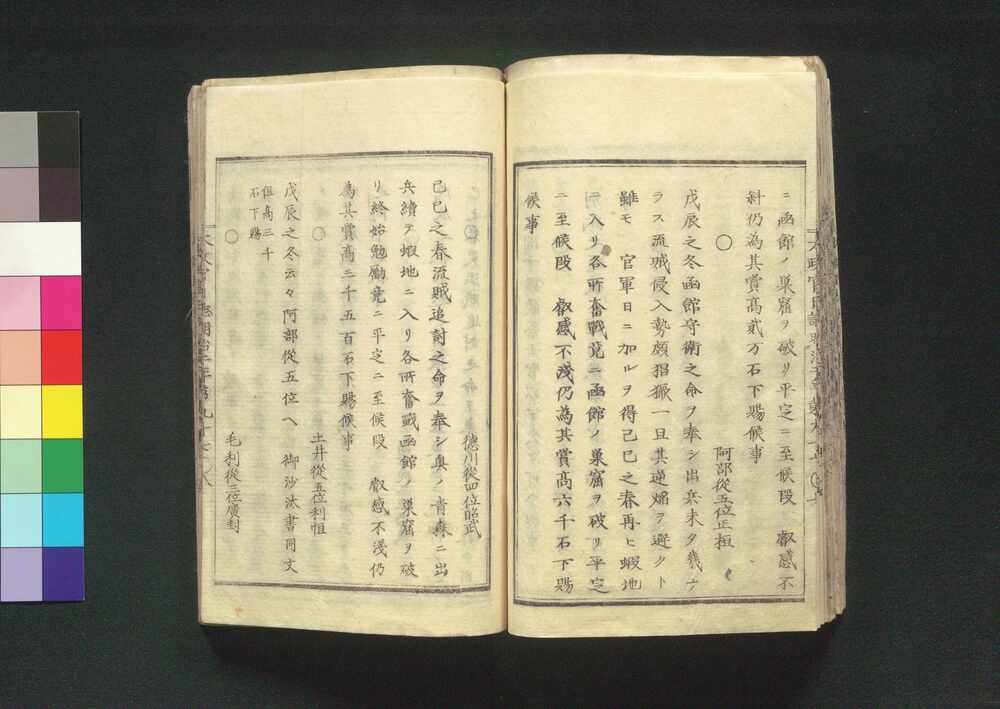 ニ函館ノ巣窟ヲ破リ平定ニ至候段 叡感不
斜仍為其賞高貳万石下賜候事
〇 阿部從五位正桓
戊辰之冬函館守衛之命ヲ奉シ出兵未タ幾ナ
ラス流賊侵入勢頗猖獗一旦其逆焔ヲ避クト
雖モ 官軍日ニ加ルヲ得己巳之春再ヒ蝦地
ニ入リ各所奮戰竟ニ函館ノ巣窟ヲ破リ平定
ニ至候段 叡感不淺仍為其賞高六千石下賜
候事
〇 德川從四位昭武
己巳之春流賊追討之命ヲ奉シ奥ノ青森ニ出
兵續テ蝦地ニ入リ各所奮戰函館ノ巣窟ヲ破
リ終始勉勵竟ニ平定ニ至候段 叡感不淺仍
為其賞高三千五百石下賜候事
〇 土井從五位利恒
戊辰之冬云々阿部從五位ヘ 御沙汰書同文
但高三千
石下賜
〇 毛利從三位廣封